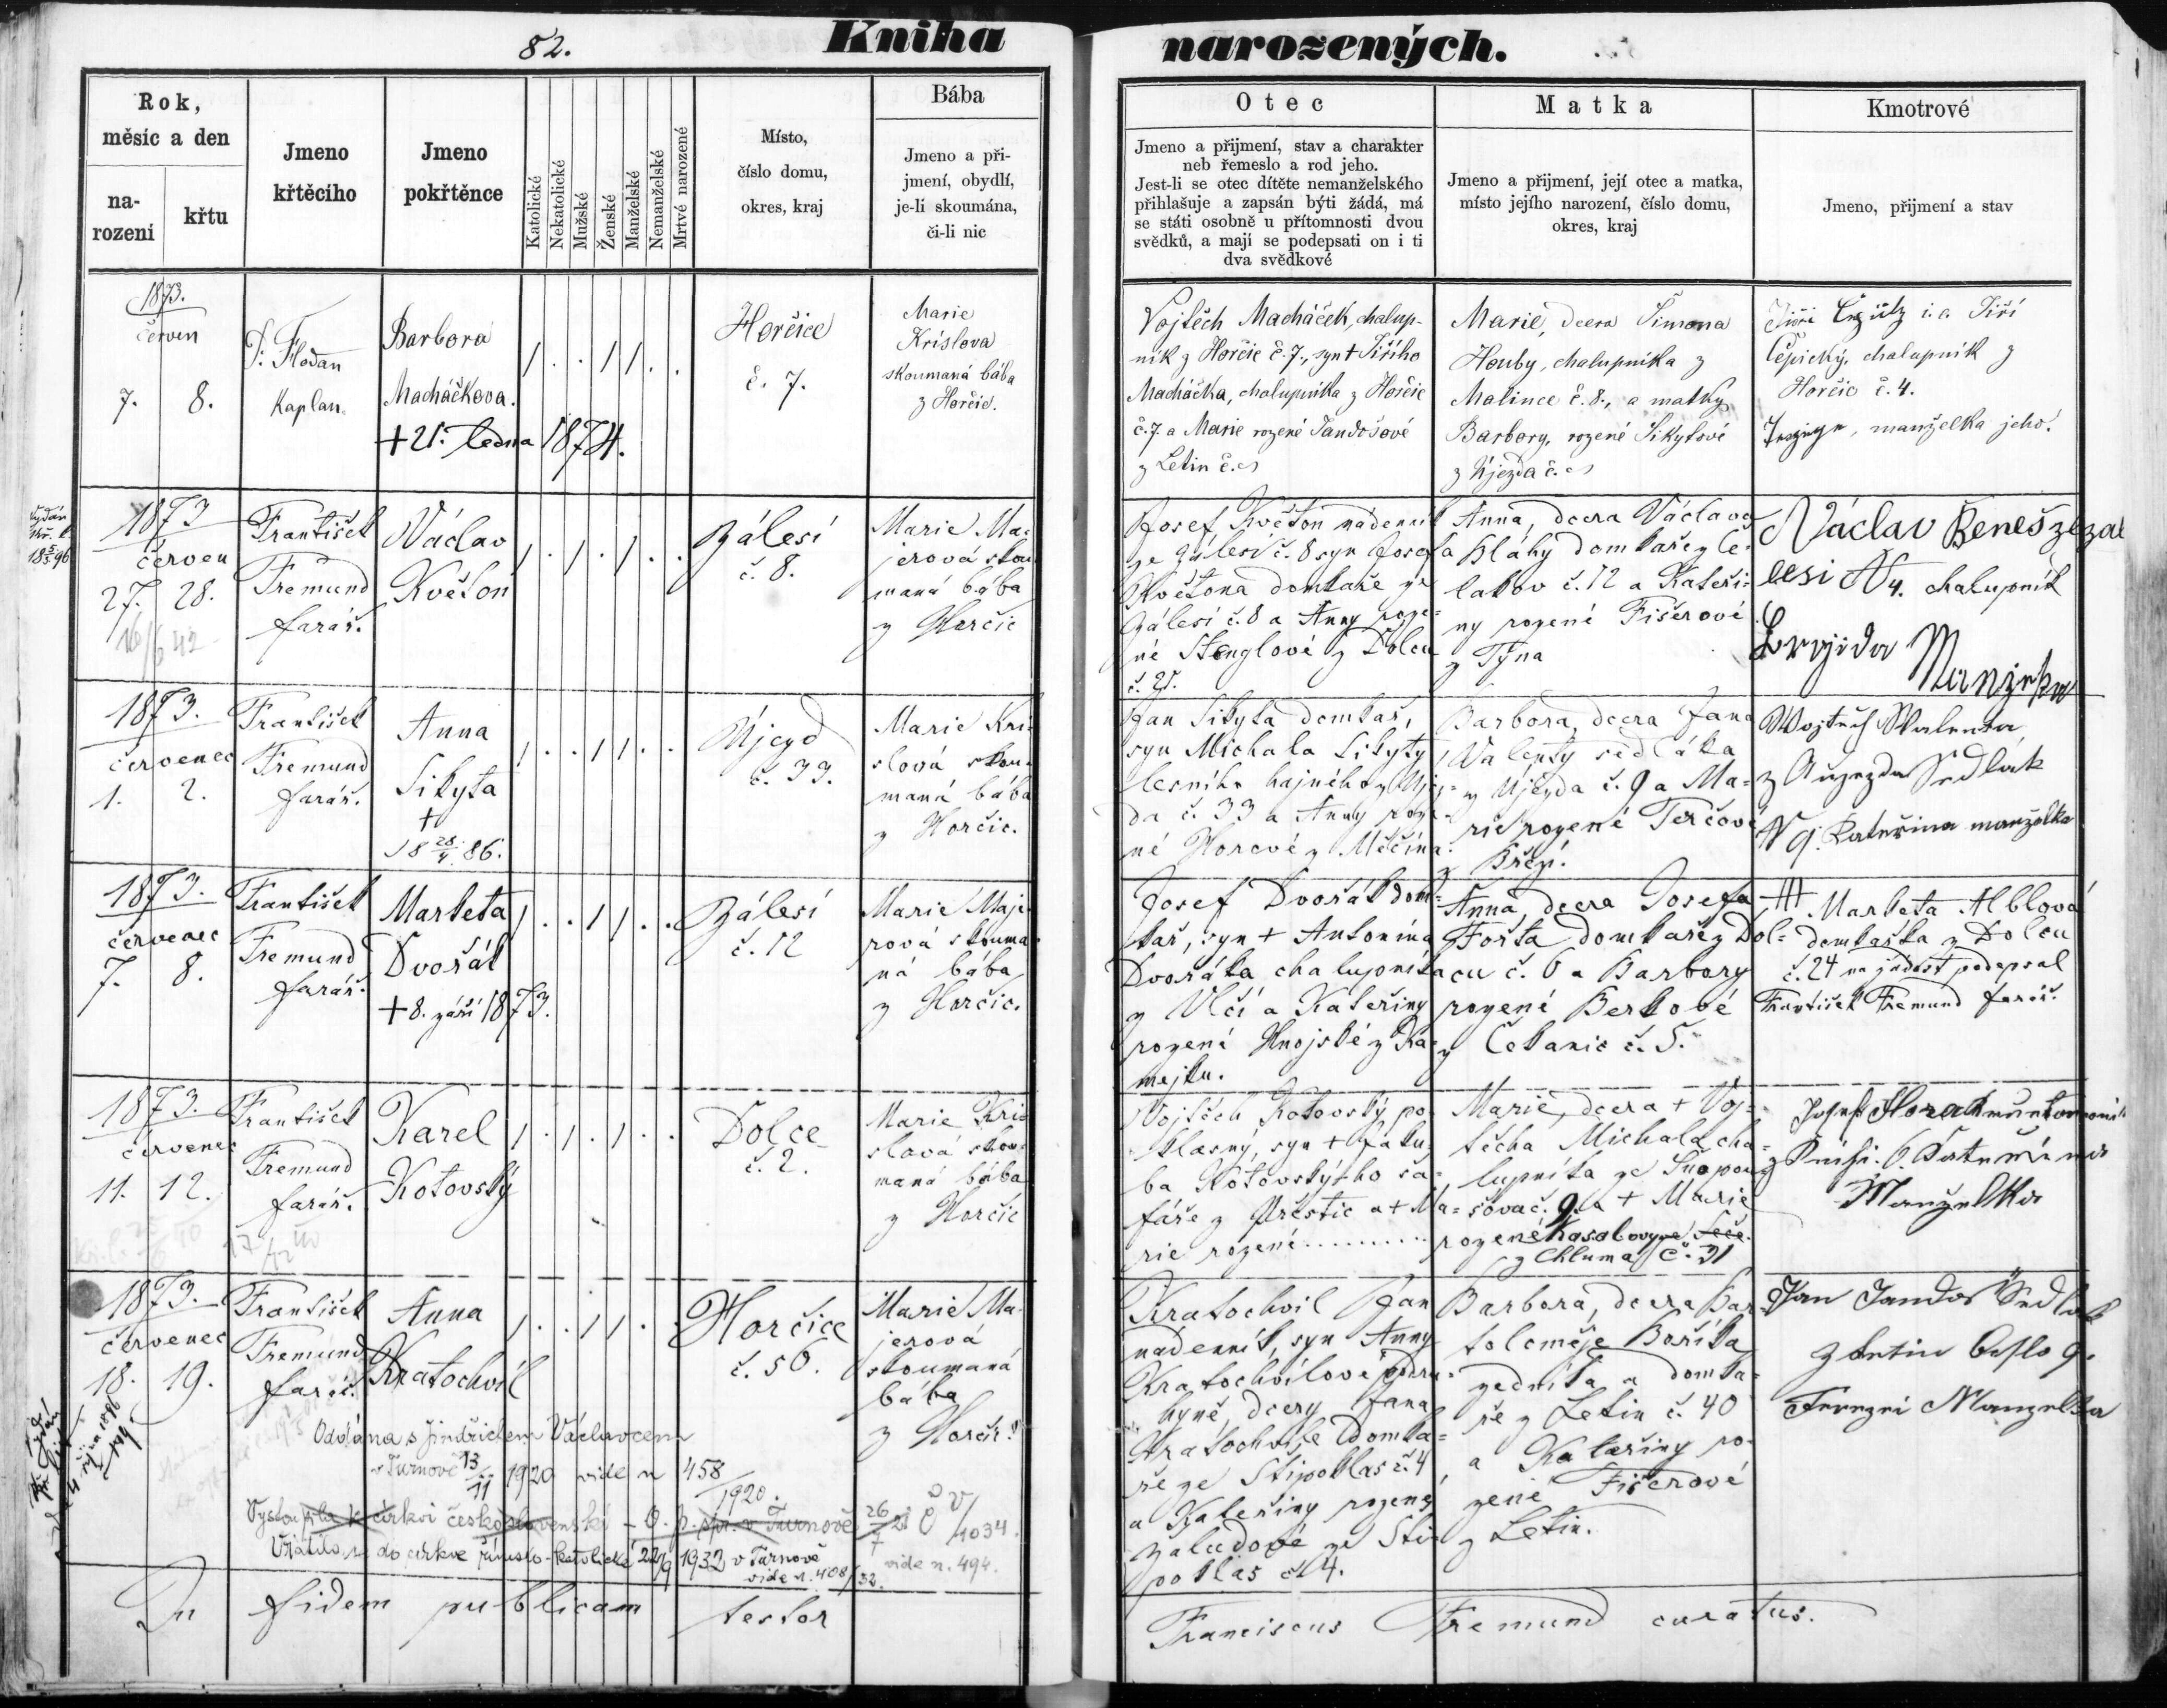 82.
Kniha narozených.
Rok,
měsíc a den
na-
rozeni
křtu
Jmeno
křtěcího
Jmeno
pokřtěnce
Katolické
Nekatolické
Mužské
Ženské
Manželské
Nemanželské
Mrtvé narozené
Místo,
číslo domu,
okres, kraj
Bába
Jmeno a při-
jmení, obydlí,
je-li skoumána,
či-li nic
Otec
Jmeno a přijmení, stav a charakter
neb řemeslo a rod jeho.
Jest-li se otec dítěte nemanželského
přihlašuje a zapsán býti žádá, má
se státi osobně u přítomnosti dvou
svědků, a mají se podepsati on i ti
dva svědkové
Matka
Jmeno a přijmení, její otec a matka,
místo jejího narození, číslo domu,
okres, kraj
Kmotrové
Jmeno, přijmení a stav
1873.
červen
7. 8.
Kaplan
Barbora
Macháčkova.
+ 21. ledna 1874.
Horčice
č. 7.
Marie
Kríslova
skoumaná bába
z Horčic.
Vojtěch Macháček, chalup-
ník z Horčic č. 7., syn + Jiřího
Macháčka, chalupníka z Horčic
č. 7. a Marie rozené Jandošové
z Letin č.
Marie, dcera Šimona
Houby, chalupníka z
Malince č. 8., a matky
Barbory, rozené Šikytové
z Újezda č.
Jiří
Čepický, chalupník z
Horčic č. 4.
manželka jeho.
1873
červen
27. 28.
František
Fremund
farář.
Václav
Květoň
Zálesí
č. 8.
Marie Ma-
jerová skou-
maná bába
z Horčic
Josef Květoň nádeník
ze Zálesí č. 8 syn Josefa
Květona domkaře ze
Zálesí č. 8 a Anny roze-
né Stenglové z Dolce
č. 21.
Anna, dcera Václava
Bláhy domkaře z Če-
lakov č. 12 a Kateři-
ny rozené Fišerové
z Týna
Václav Beneš ze Zal
lesi N 4. chalupník
Brigida
Manželka
1873.
červenec
1. 2.
František
Fremund
farář.
Anna
Sikyta
+
18 28/4 86.
Újezd
č. 33.
Marie Krí-
slová skou-
maná bába
z Horčic.
Jan Sikyta domkař,
syn Michala Sikyty
lesního hajného z Újez-
da č. 33 a Anny roze-
né Horové z Měčína.
Barbora, dcera Jana
Valenty sedláka
z Újezda č. 9 a Ma-
rie rozené Terčové
z Břězí.
Wojtěch Walenta
z Augezda Sedlák
N 9. Kateřina manželka
1873.
červenec
7. 8.
František
Fremund
farář.
Markéta
Dvořák
+ 8. září 1873.
Zálesí
č. 12
Marie Maje-
rová skouma-
ná bába
z Horčic.
Josef Dvořák dom-
kař, syn + Antonína
Dvořáka chalupníka
z Vlčí a Kateřiny
rozené Hnojské z Ka-
mejku.
Anna, dcera Josefa
Fořta domkaře z Dol-
cu č. 6 a Barbory
rozené Berkové
z Čekanic č. 5.
+++ Markéta Alblová
domkařka z Dolcu
č. 24 na žádost podepsal
František Fremund farář.
1873.
červenec
11. 12.
František
Fremund
farář.
Karel
Kotovský
Dolce
č. 2.
Marie Krí-
slová skou-
maná bába
z Horčic
Vojtěch Kotovský po-
klasný, syn + Jaku-
ba Kotovskýho ša-
fáře z Přestic a + Ma-
rie rozené ..........
Marie, dcera + Voj-
těcha Michala cha-
lupníka ze Snopou-
šova č. 9. a + Marie
rozené Kasalovy
z Chluma č. 31
Josef Horak
Kateřina
Manželka
1873.
červenec
18. 19.
František
Fremund
farář.
Anna
Kratochvíl
Horčice
č. 56.
Marie Ma-
jerová
skoumaná
bába
z Horčic.
Kratochvíl Jan
nádenník, syn Anny
Kratochvílové podru-
hyně, dcery Jana
Kratochvíle domka-
ře ze Štipoklas č. 4
a Kateřiny rozené
Žaludové ze Šti-
poklas č. 4.
Barbora, dcera Bar-
toloměje Boříka
zedníka a domka-
ře z Letin č. 40
a Kateřiny ro-
zené Fišerové
z Letin.
Jan Jandoš Sedlák
z Letin Čislo 9.
Manzelka
Oddána s Jindřichem Václavcem
v Turnově 13/11 1920 vide n 458/1920.
Vystoupila k církvi československé - O. p. spr. v Turnově 26/7 21 č 1034.
vide n. 494.
Vrátila se do církve římsko-katolické 22/9 1932 v Turnově
vide n. 408/32.
In fidem publicam testor
Franciscus Fremund curatus.